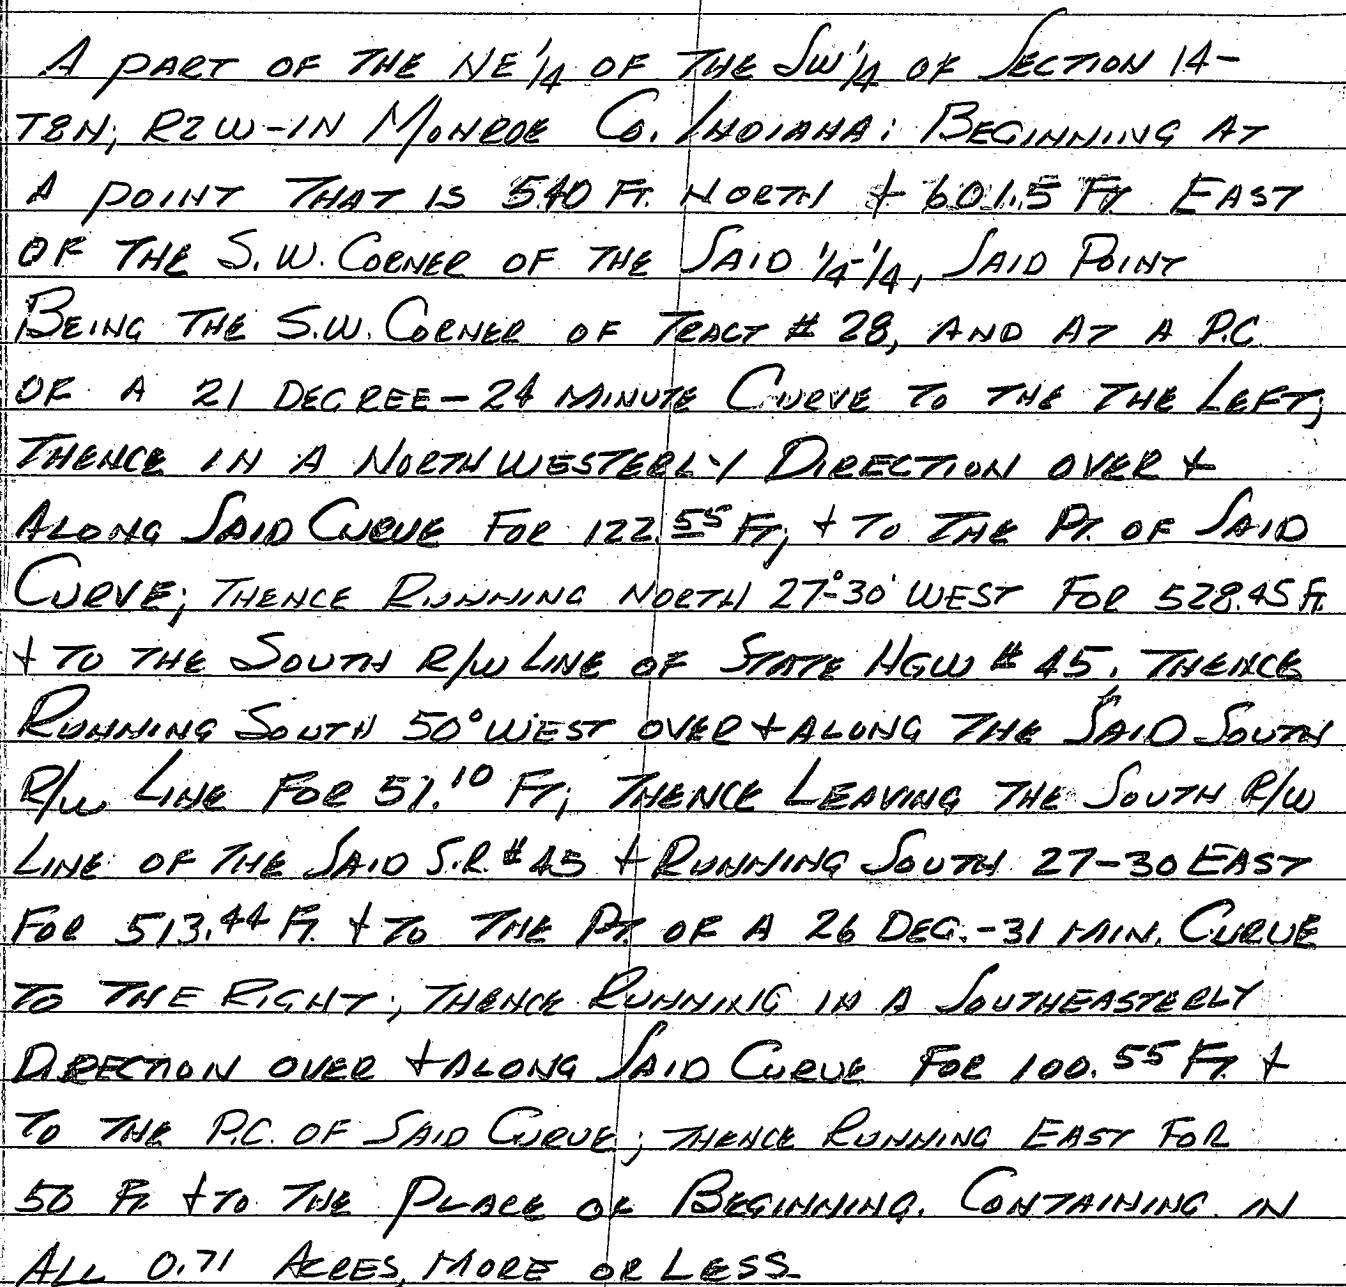 A PART OF THE NE 1/4 OF THE SW 1/4 OF SECTION 14-
T8N, R2W-IN MONROE CO. INDIANA: BEGINNING AT
A POINT THAT IS 540 FT. NORTH + 601.5 FT EAST
OF THE S.W. CORNER OF THE SAID 1/4-1/4, SAID POINT
BEING THE S.W. CORNER OF TRACT # 28, AND AT A P.C.
OF A 21 DEGREE-24 MINUTE CURVE TO THE THE LEFT;
THENCE IN A NORTHWESTERLY DIRECTION OVER +
ALONG SAID CURVE FOR 122.55 FT, + TO THE PT. OF SAID
CURVE; THENCE RUNNING NORTH 27°-30' WEST FOR 528.45 FT.
+ TO THE SOUTH R/W LINE OF STATE HGW # 45. THENCE
RUNNING SOUTH 50° WEST OVER + ALONG THE SAID SOUTH
R/W LINE FOR 51.10 FT; THENCE LEAVING THE SOUTH R/W
LINE OF THE SAID S.R. # 45 + RUNNING SOUTH 27-30 EAST
FOR 513.44 FT. + TO THE PT. OF A 26 DEG.-31 MIN. CURVE
TO THE RIGHT; THENCE RUNNING IN A SOUTHEASTERLY
DIRECTION OVER + ALONG SAID CURVE FOR 100.55 FT. +
TO THE P.C. OF SAID CURVE; THENCE RUNNING EAST FOR
50 FT. + TO THE PLACE OF BEGINNING. CONTAINING IN
ALL 0.71 ACRES, MORE OR LESS.